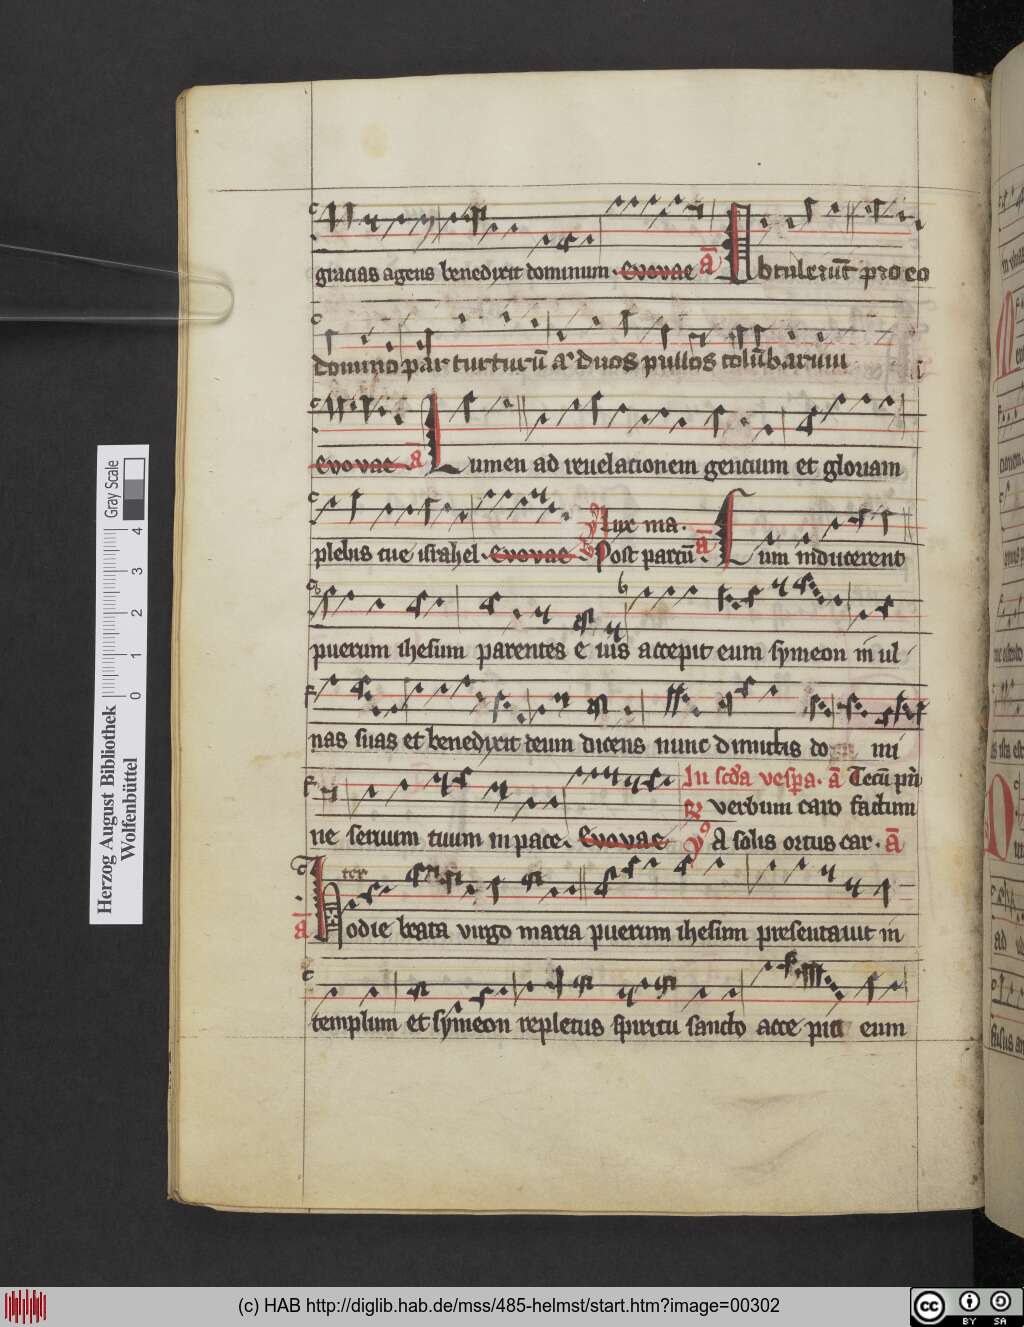 gracias agens benedixit dominum. Evovae ā Obtulerūt pro eo
domino par turturū aū duos pullos colūbarum
Evovae ā Lumen ad revelacionem gencium et gloriam
plebis tue israhel. Evovae Lux ma.
Post partū. ā Cum inducerent
puerum ihesum parentes eius accepit eum symeon in ul
nas suas et benedixit deum dicens nunc dimittis do mi
In scd̄a vesp̄a. ā Tecū prī
verbum caro factum
ne servum tuum in pace. Evovae A solis ortus car. ā
ter
Hodie beata virgo maria puerum ihesum presentavit in
templum et symeon repletus spiritu sancto acce pit eum
Herzog August Bibliothek
Wolfenbüttel
0 1 2 3 4
Gray Scale
(c) HAB http://diglib.hab.de/mss/485-helmst/start.htm?image=00302
cc BY SA